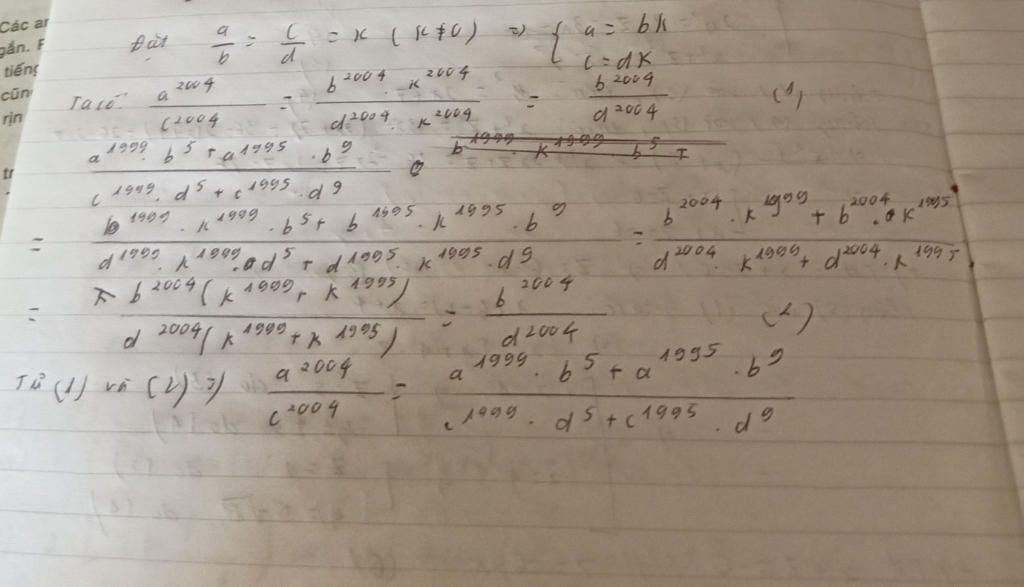 Các an
gắn. F
tiếng
cũn
rịn
tr
Đặt a/b = c/d = k (k ≠ 0) => { a = bk
c = dk
Ta có: a^2004/c^2004 = (b^2004 . k^2004)/(d^2004 . k^2004) = b^2004/d^2004 (1)
(a^1999 . b^5 + a^1995 . b^9)/(c^1999 . d^5 + c^1995 . d^9)
= (b^1999 . k^1999 . b^5 + b^1995 . k^1995 . b^9)/(d^1999 . k^1999 . d^5 + d^1995 . k^1995 . d^9) = (b^2004 . k^1999 + b^2004 . k^1995)/(d^2004 . k^1999 + d^2004 . k^1995)
= b^2004(k^1999 + k^1995)/d^2004(k^1999 + k^1995) = b^2004/d^2004 (2)
Từ (1) và (2) => a^2004/c^2004 = (a^1999 . b^5 + a^1995 . b^9)/(c^1999 . d^5 + c^1995 . d^9)